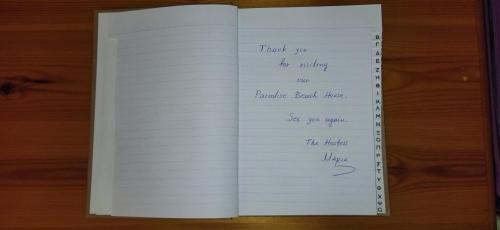 Thank you
for visiting
our
Paradise Beach House.
See you again.
The Hostess
Мария
Β
Γ
Δ
Ε
Ζ
Η
Θ
Ι
Κ
Λ
Μ
Ν
Ξ
Ο
Π
Ρ
Σ
Τ
Υ
Φ
Χ
Ψ
Ω